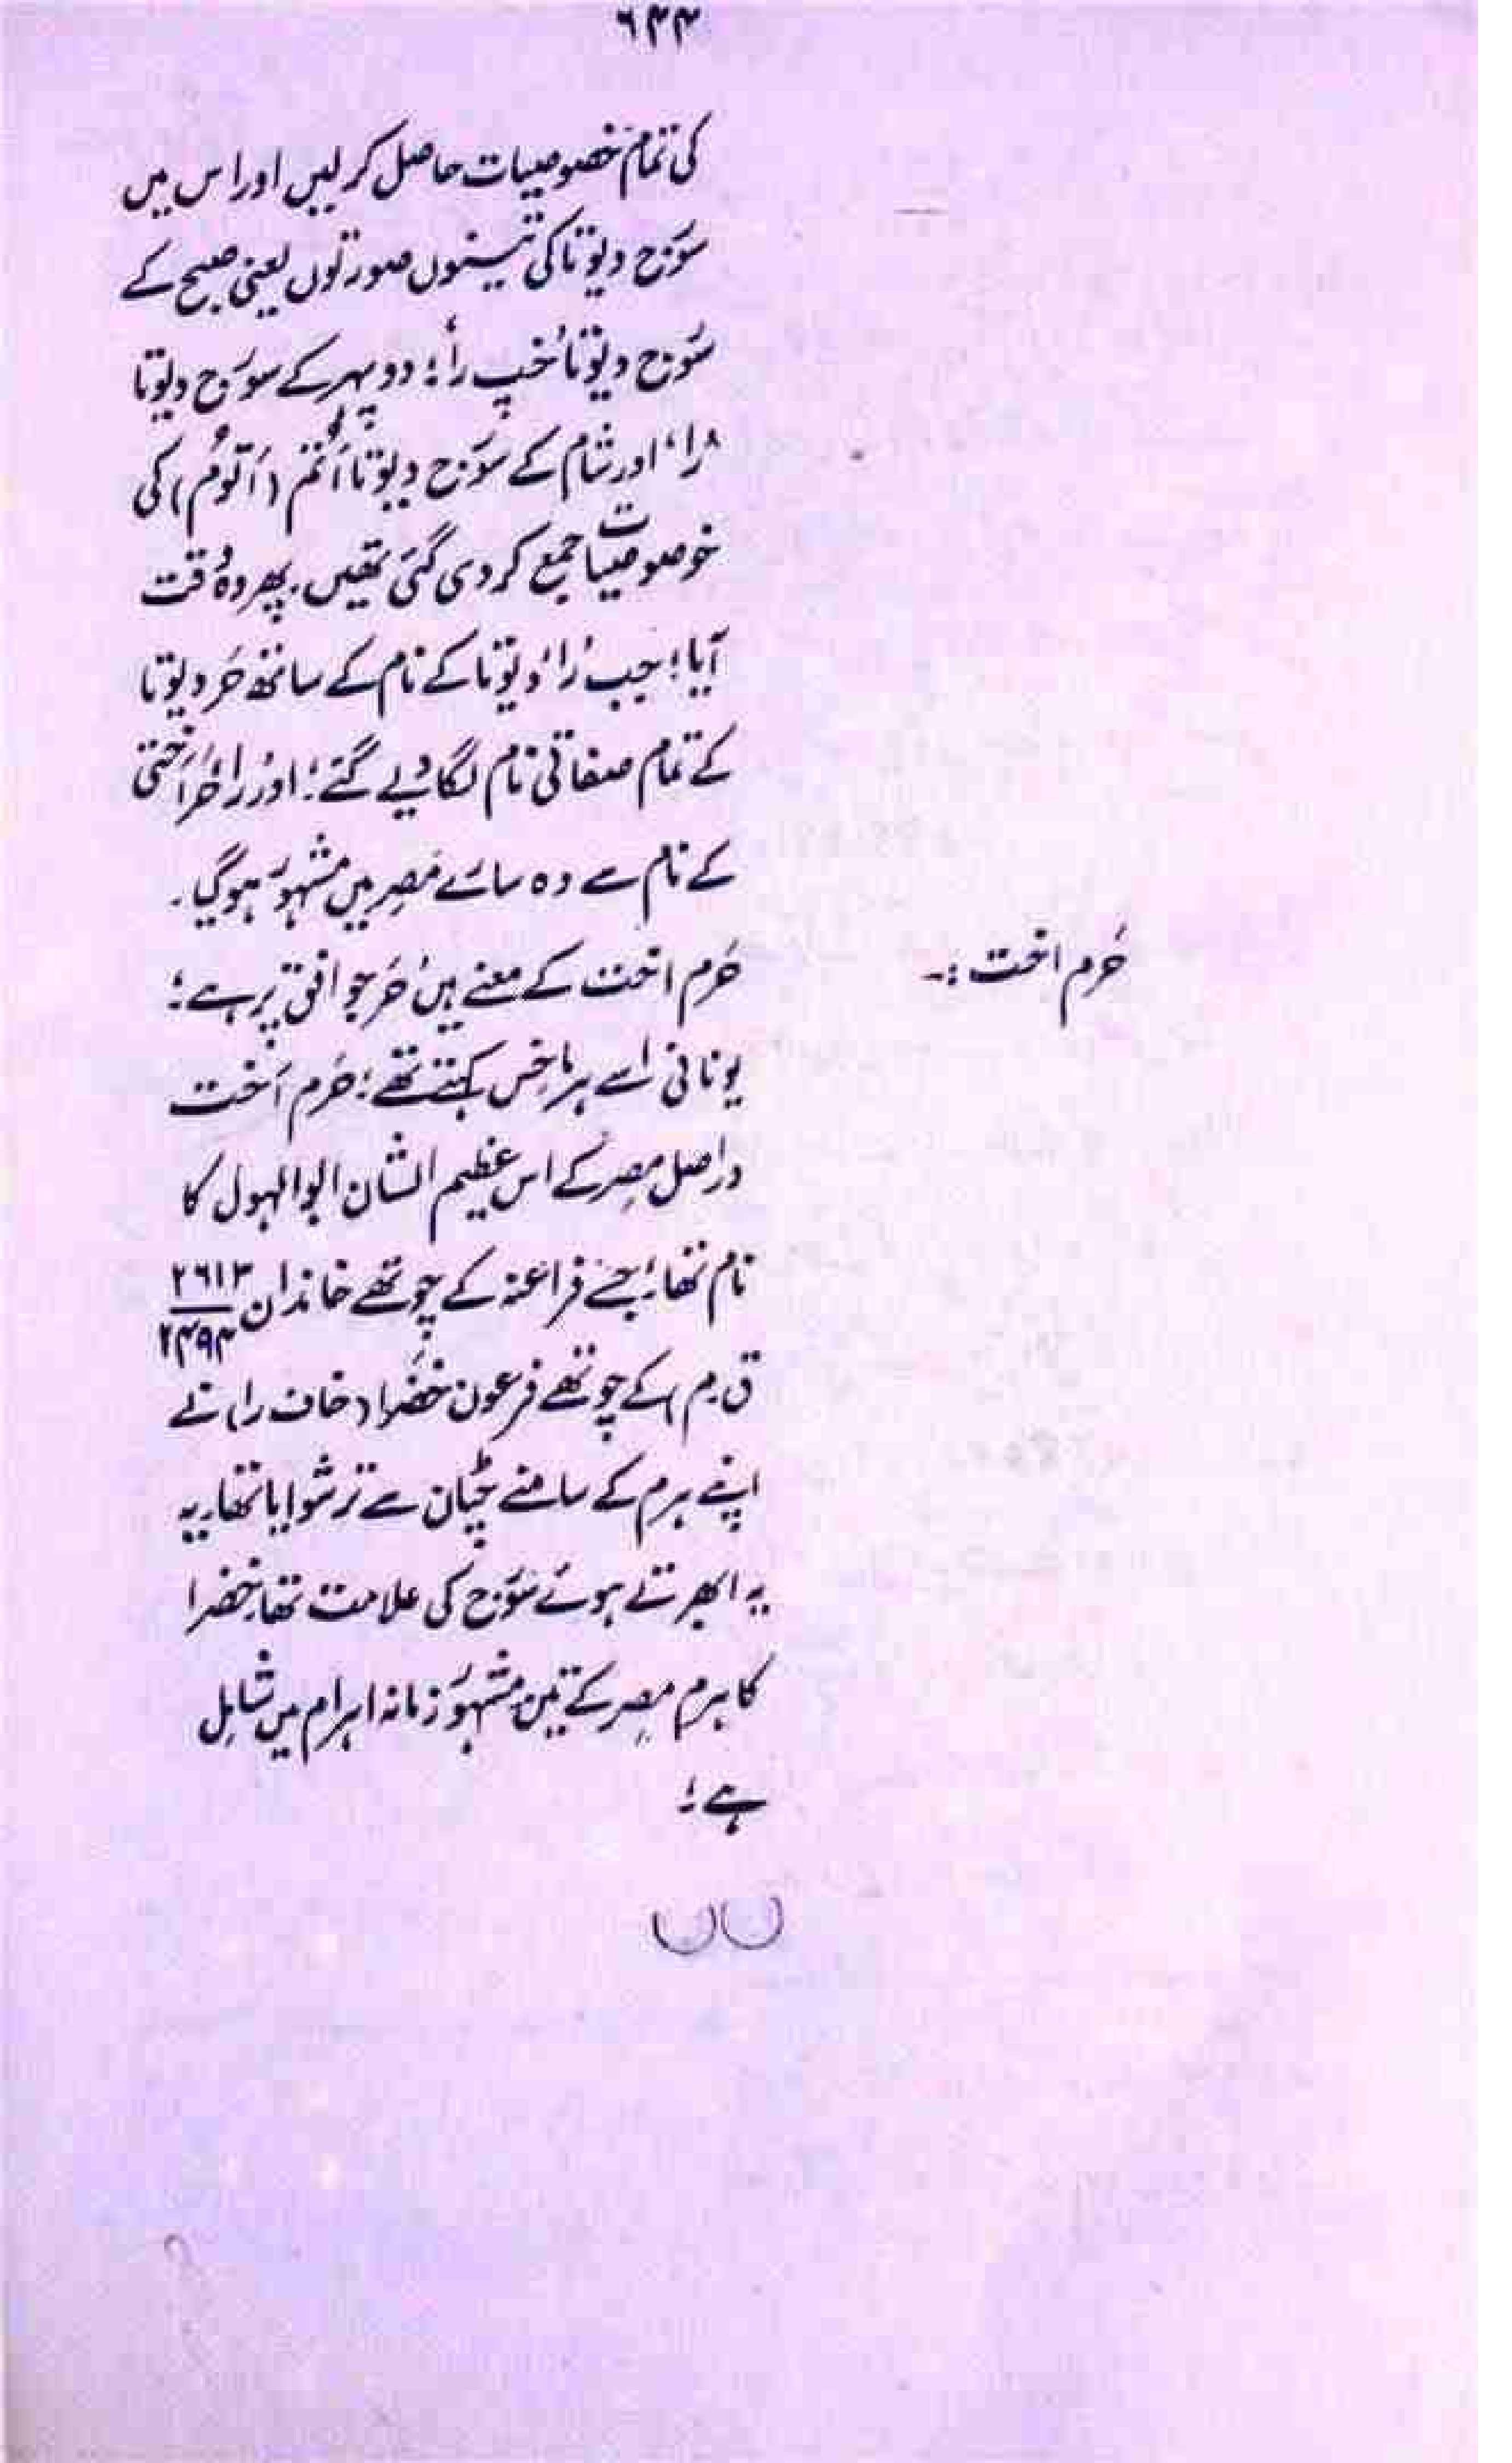 ۶۴۴
کی تمام خصوصیات حاصل کر لیں اور اس میں
سورج دیوتا کی تینوں صورتوں یعنی صبح کے
سورج دیوتا 'خپ را'؛ دوپہر کے سورج دیوتا
'را' اور شام کے سورج دیوتا اَتُم (اَتوُم) کی
خوصوصیات جمع کر دی گئی تھیں۔ پھر وہ وقت
آیا؛ جب 'را' دیوتا کے نام کے ساتھ حَر دیوتا
کے تمام صفاتی نام لگا دیے گئے؛ اور 'را حَر اَختی'
کے نام سے وہ سارے مصر میں مشہور ہو گیا۔
حَرم اخت :۔ حَرم اخت کے معنے ہیں 'حَر جو افق پر ہے'؛
یونانی اسے ہرماخِس کہتے تھے؛ حَرم اَخت
دراصل مصر کے اس عظیم الشان ابوالہول کا
نام تھا؛ جسے فراعنہ کے چوتھے خاندان ۲۶۱۳/۲۴۹۴
ق۔م) کے چوتھے فرعون خفرا (خاف را) نے
اپنے ہرم کے سامنے چٹان سے ترشوایا تھا۔ یہ
یہ ابھرتے ہوئے سورج کی علامت تھا۔ خفرا
کا ہرم مصر کے تین مشہور زمانہ اہرام میں شامِل
ہے؛